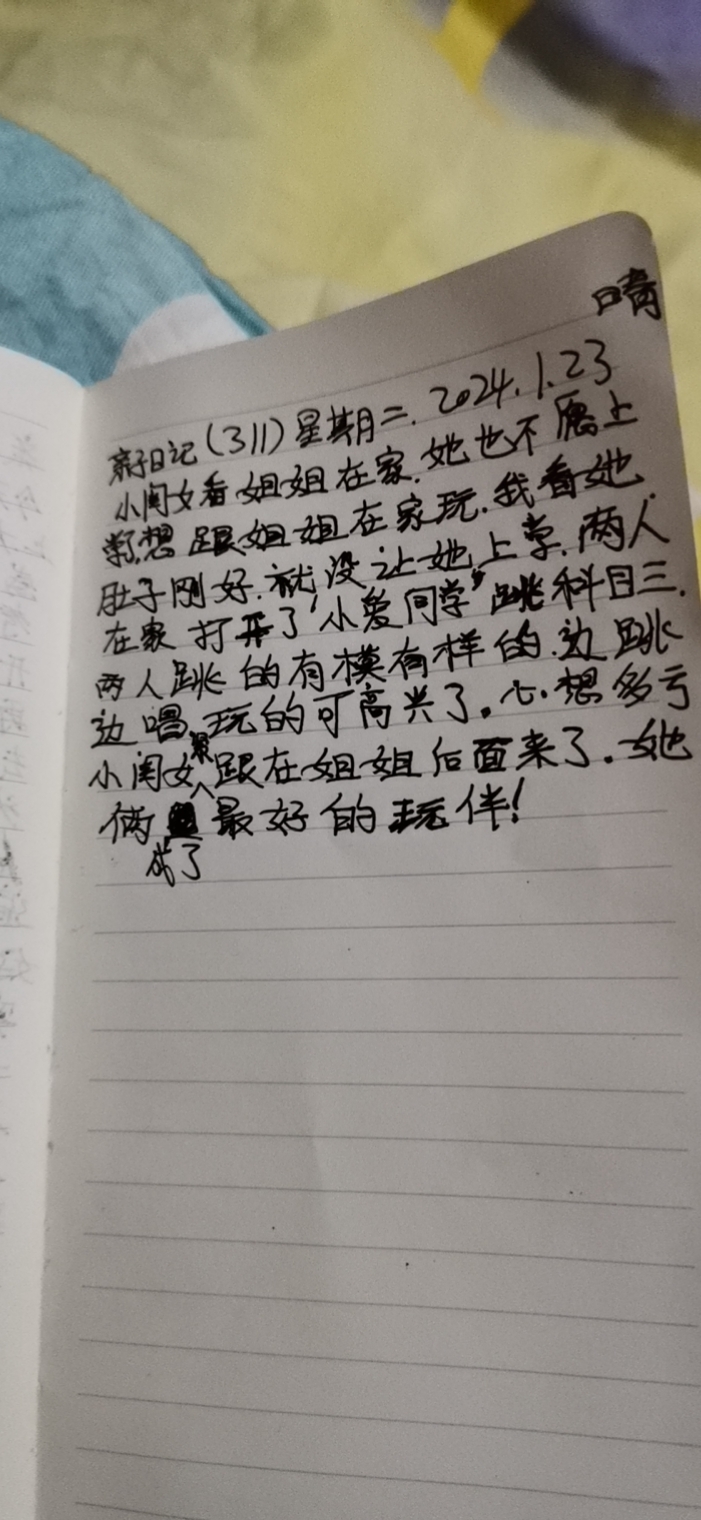 晴
亲子日记(311)星期二. 2024.1.23
小闺女看姐姐在家.她也不愿上
学,想跟姐姐在家玩.我看她
肚子刚好.就没让她上学.两人
在家打开了“小爱同学”跳科目三.
两人跳的有模有样的.边跳
边唱,玩的可高兴了。心想多亏
小闺女跟在姐姐后面来了.她
俩成了最好的玩伴!